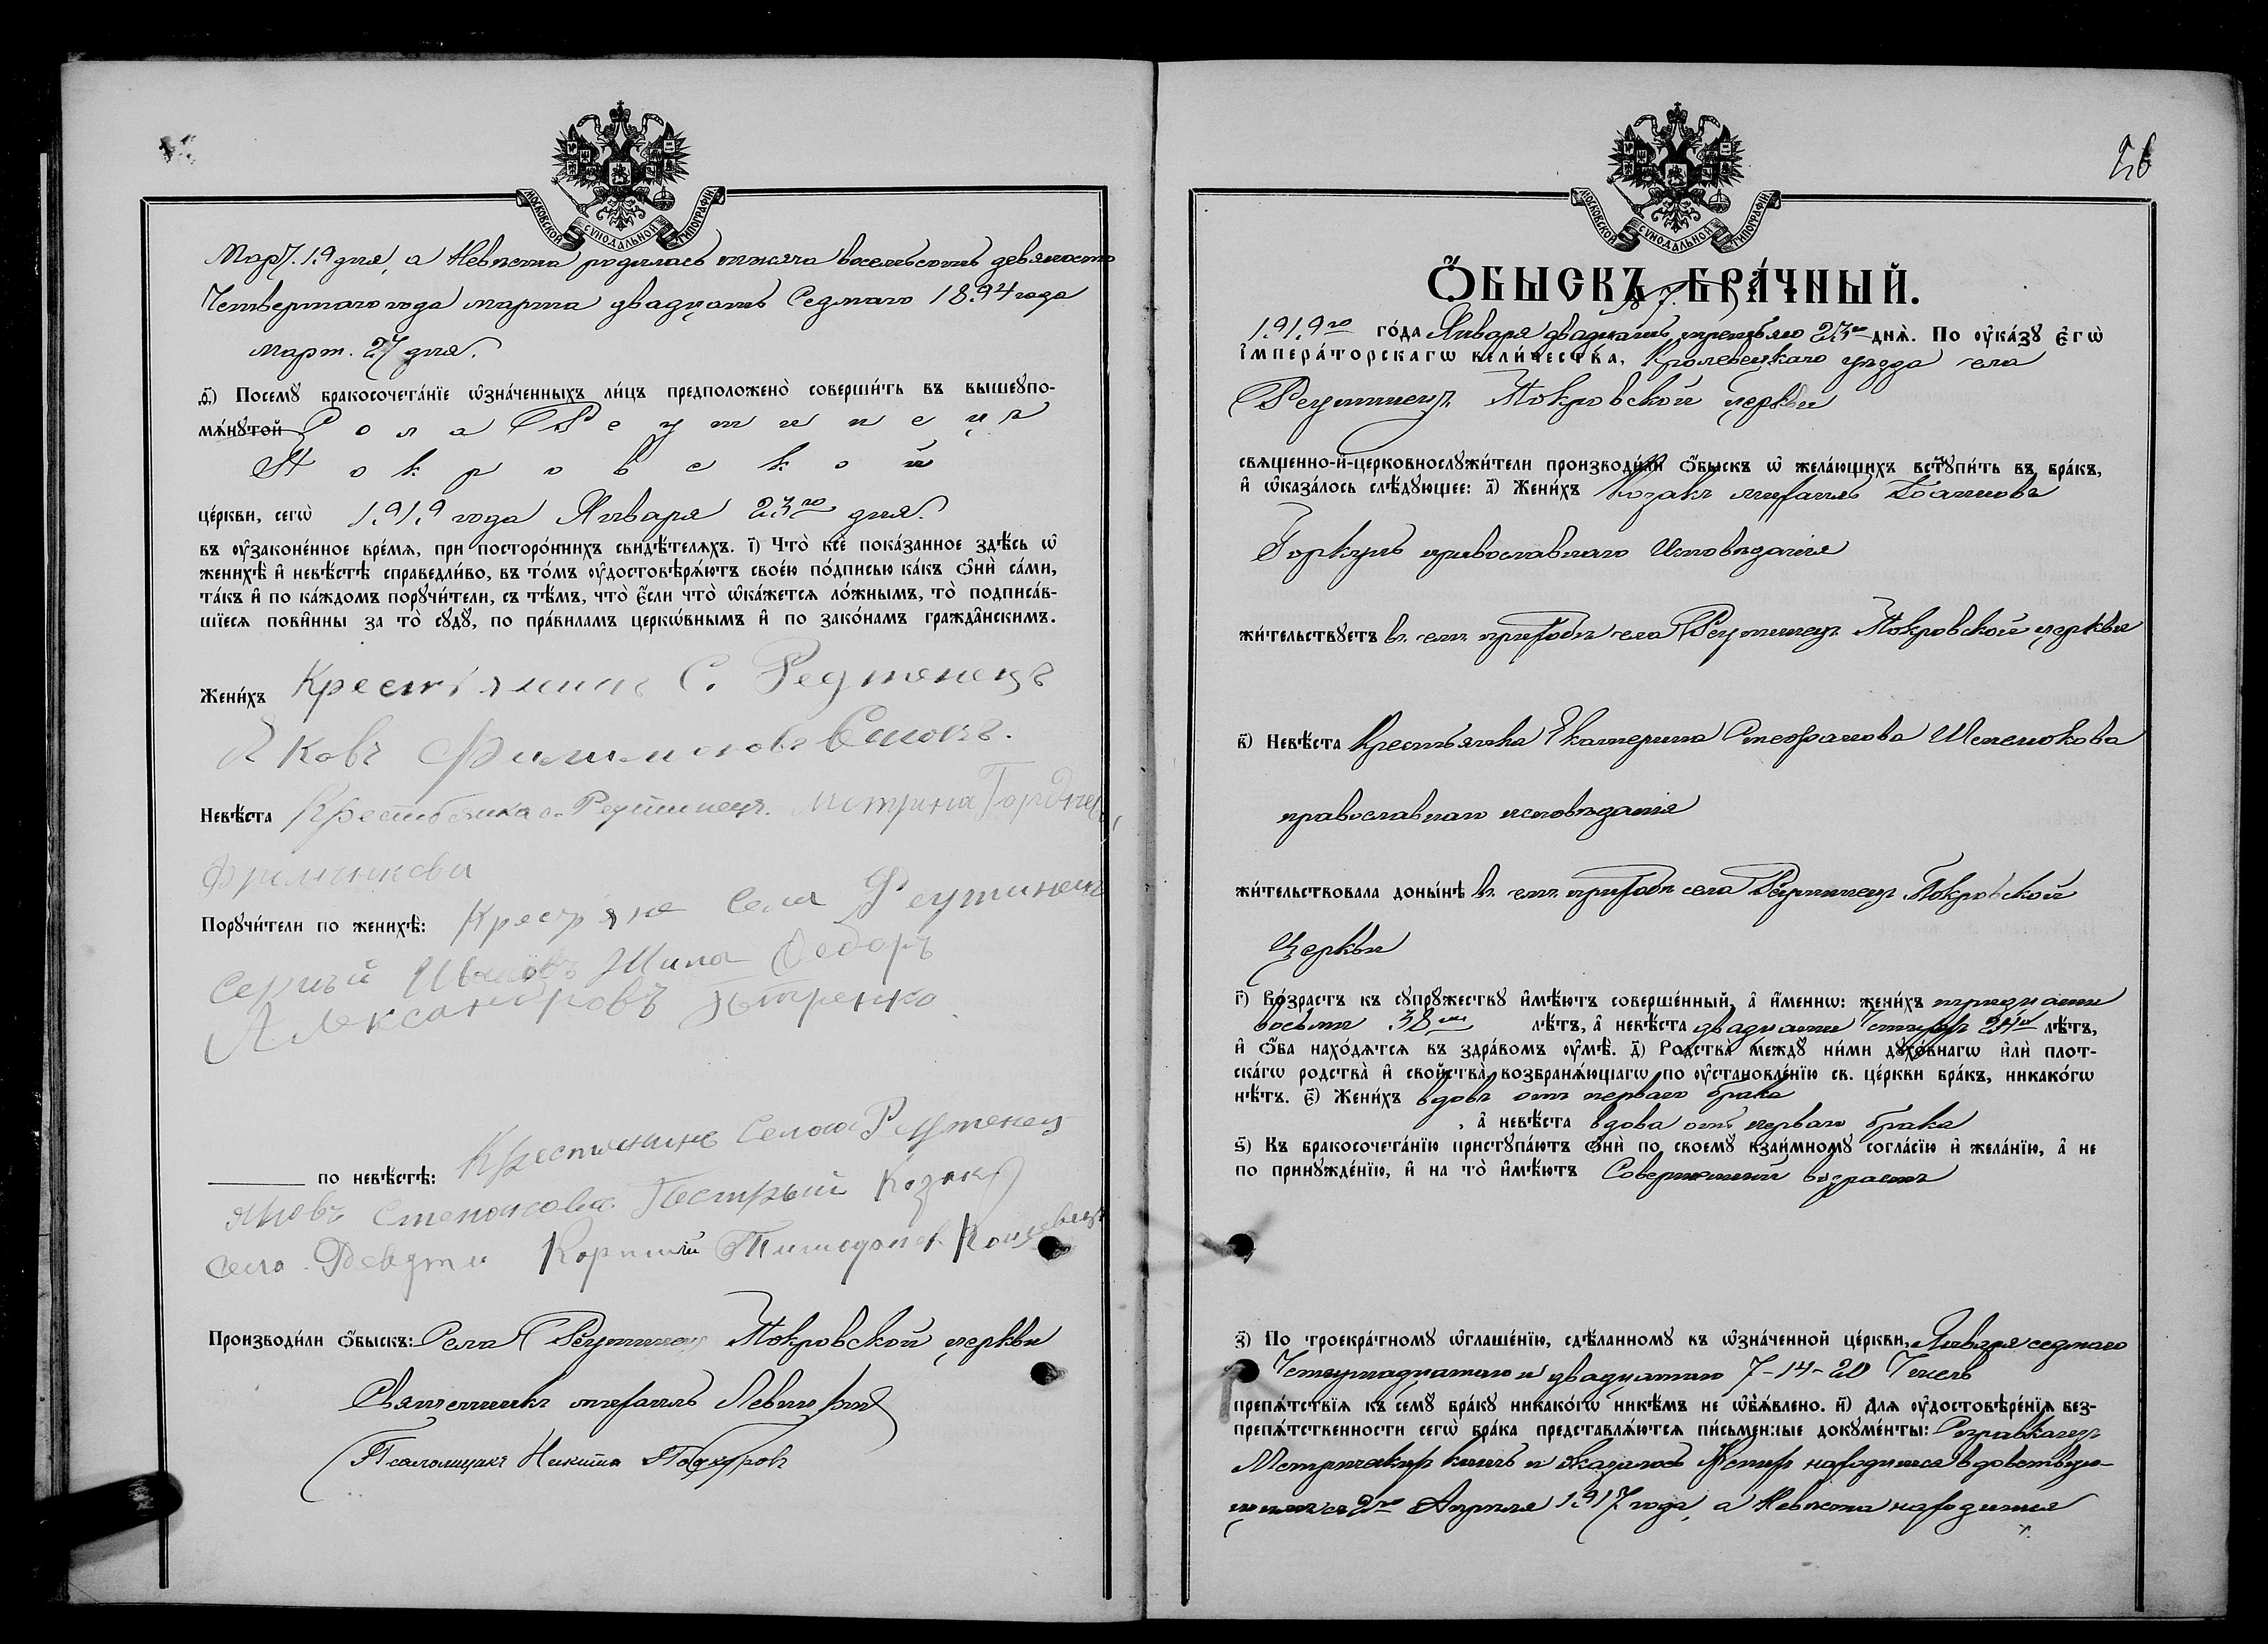 МОСКОВСКОЙ СѴНОДАЛЬНОЙ ТИПОГРАФІИ
Мар. 19 дня, а Невѣста родилась тысяча восемьсотъ девяносто
Четвертаго года марта двадцать Седмаго 1894 года
март. 27 дня.
д҃і) Посемꙋ бракосочета́нїе ѡ҆зна́ченныхъ ли́цъ предположено̀ соверши́ть въ вышеꙋпо-
мѧ́нꙋтой Села Реутинецъ
Покровской
це́ркви, сегѡ̀ 1919 года Января 23го дня.
въ ᲂу҆законе́нное вре́мя, при посторо́ннихъ свидѣ́теляхъ. і҃) Что̀ всѐ пока́занное здѣ́сь ѡ҆
женихѣ̀ и҆ невѣ́стѣ справедли́во, въ то́мъ ᲂу҆достовѣрѧ́ютъ свое́ю по́дписью ка́къ ѻ҆нѝ са́ми,
та́къ и҆ по ка́ждомъ порꙋчи́тели, съ тѣ́мъ, что̀ є҆́сли что̀ ѡ҆ка́жется ло́жнымъ, то̀ подписа́в-
шїеся пови́нны за то̀ сꙋдꙋ̀, по пра́виламъ церко́внымъ и҆ по зако́намъ гражда́нскимъ.
Жени́хъ Крестьянинъ С. Реутенецъ
Яковъ Филимоновъ
Невѣ́ста Крестьянка с. Реутинецъ
Порꙋчи́тели по женихѣ̀: Крестьяне Села Реутинецъ
Сергѣй Ивановъ Шила Федоръ
Александровъ Петренко
по невѣ́стѣ: Крестянинъ Села Реутенец
Яковъ Пестрый Козакъ
Село
Производи́ли ѻ҆́быскъ: Села Реутинецъ Покровской церкви
Священникъ Михаилъ Левицкій
Псаломщикъ Никита
МОСКОВСКОЙ СѴНОДАЛЬНОЙ ТИПОГРАФІИ
26
Ѻ҆́БЫСКЪ БРА́ЧНЫЙ.
№ 7.
1919го го́да Января двадцать третьяго 23го дня̀. По ᲂу҆ка́зꙋ є҆гѡ̀
і҆мпера́торскагѡ вели́чества, Кролевецкаго уѣзда села
Реутинецъ Покровской церкви
свяще́нно-и҆-церковнослꙋжи́тели производи́ли ѻ҆́быскъ ѡ҆ жела́ющихъ встꙋпи́ть въ бра́къ,
и҆ ѡ҆каза́лось слѣ́дꙋющее: а҃) Жени́хъ Козакъ Михаилъ Іоанновъ
Горкунъ православнаго Исповѣданія
жи́тельствꙋетъ въ семъ приходѣ села Реутинецъ Покровской церкви
в҃) Невѣ́ста Крестьянка Екатерина Стефанова
православнаго исповѣданія
жи́тельствовала доны́нѣ въ семъ приходѣ села Реутинецъ Покровской
Церкви
г҃) Во́зрастъ къ сꙋпрꙋ́жествꙋ и҆мѣ́ютъ соверше́нный, а҆ и҆́менно: жени́хъ тридцати
восьми 38ми лѣ́тъ, а҆ невѣ́ста двадцати Четырехъ 24и лѣ́тъ,
и҆ ѻ҆́ба нахо́дятся въ здра́вомъ ᲂу҆мѣ̀. д҃) Родства̀ междꙋ̀ ни́ми дꙋхо́внагѡ и҆лѝ плот-
ска́гѡ родства̀ и҆ сво́йства, возбраня́ющагѡ по ᲂу҆становле́нїю св. це́ркви бра́къ, никако́гѡ
нѣ́тъ. є҃) Жени́хъ вдовъ отъ перваго брака
, а҆ невѣ́ста вдова отъ перваго брака
ѕ҃) Къ бракосочета́нїю пристꙋпа́ютъ ѻ҆нѝ по своемꙋ̀ взаи́мномꙋ согла́сїю и҆ жела́нїю, а҆ не
по принꙋжде́нїю, и҆ на то̀ и҆мѣ́ютъ Совершенный возрастъ
з҃) По троекра́тномꙋ ѡ҆глаше́нїю, сдѣ́ланномꙋ въ ѡ҆зна́ченной це́ркви, Января седмаго
Четырнадцатаго и двадцатаго 7-14-20 Чиселъ
препя́тствїя къ семꙋ̀ бра́кꙋ никако́гѡ никѣ́мъ не ѡ҆бъя́влено. и҃) Для ᲂу҆достовѣре́нїя без-
препя́тственности сегѡ̀ бра́ка представля́ются пи́сьменные докꙋме́нты: Справка изъ
Метрическихъ книгъ и оказалось Женихъ находится вдовствую-
щимъ съ 2го Апрѣля 1917 года, а Невѣста находится